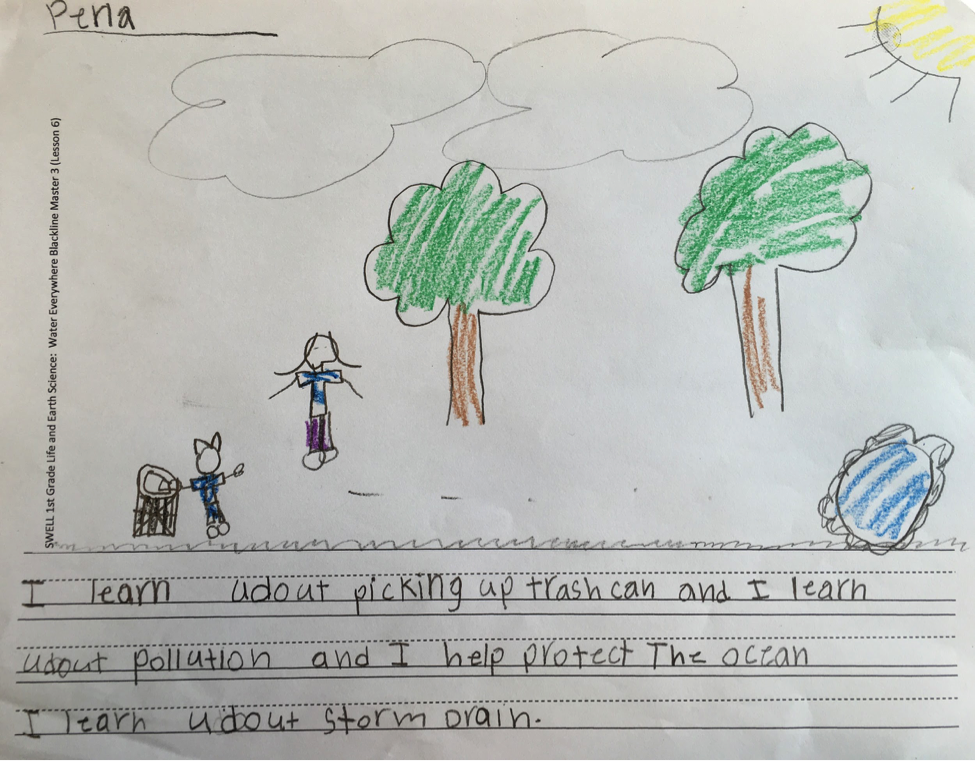 Perla
SWELL 1st Grade Life and Earth Science: Water Everywhere Blackline Master 3 (Lesson 6)
I learn udout picking up trash can and I learn
udout pollution and I help protect The ocean
I learn udout storm Drain.